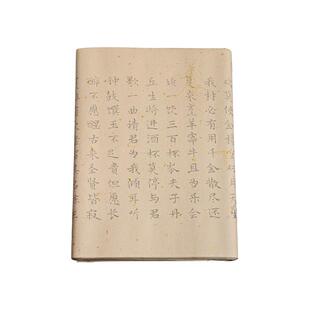 莫使金
我材必有用千金散尽还
复来烹羊宰牛且为乐会
须一饮三百杯岑夫子丹
丘生将进酒杯莫停与君
歌一曲请君为我倾耳听
钟鼓馔玉不足贵但愿长
醉不愿醒古来圣贤皆寂